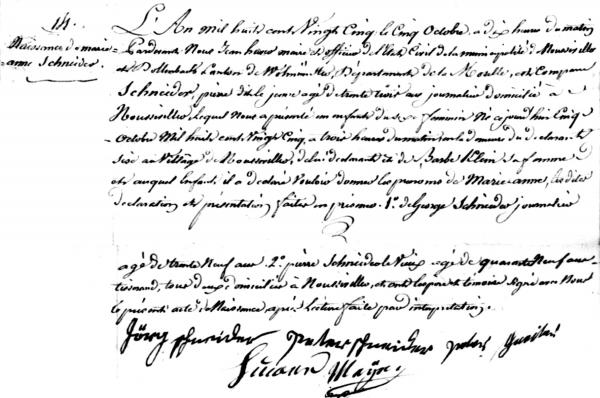 14.
Naissance de marie
anne Schneider.
L'An mil huit cent Vingt Cinq le Cinq Octobre, a dix heures du matin
Pardevant Nous Jean maire et officier de l'Etat Civil de la municipalité de Moussviller
et Canton de Département de la Moselle, est Comparu
Schneider, pierre dit le jeune agé de trente trois ans journalier domicilié a
Moussviller, lequel Nous a presenté un enfant du sexe feminin Né aujourd'hui Cinq
Octobre Mil huit cent Vingt Cinq, a trois heures du matin, en la demeure du declarant
Sise au Village de Moussviller, de lui declarant et de Barbe Klein sa femme
et auquel Enfant il a declaré Vouloir donner les prenoms de Marie-anne, les dites
declaration et présentation faites en présence 1.° de George Schneider journalier
agé de trente Neuf ans 2.° pierre Schneider le Vieux agé de quarante Neuf ans
tisserand, tous deux domiciliés à Moussviller, et ont les pere et temoins Signé avec Nous
le présent acte de Naissance, après Lecture faite par interpretation.
Jörg schneider peter schneider peter